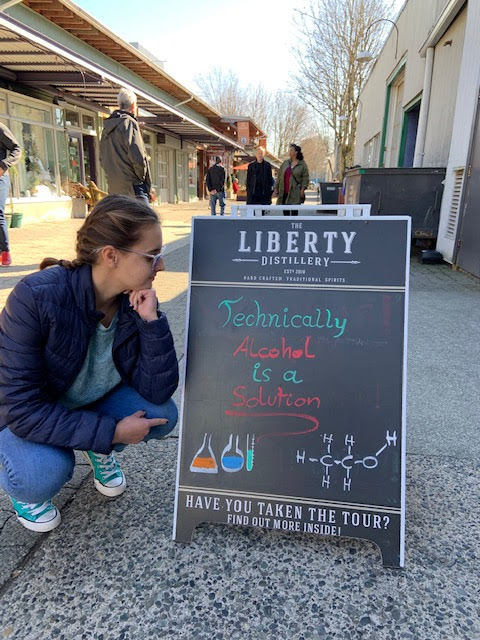 THE
LIBERTY
DISTILLERY
ESTD 2010
HAND CRAFTED TRADITIONAL SPIRITS
Technically
Alcohol
is a
Solution
H H H
H C C O
H H
HAVE YOU TAKEN THE TOUR?
FIND OUT MORE INSIDE!